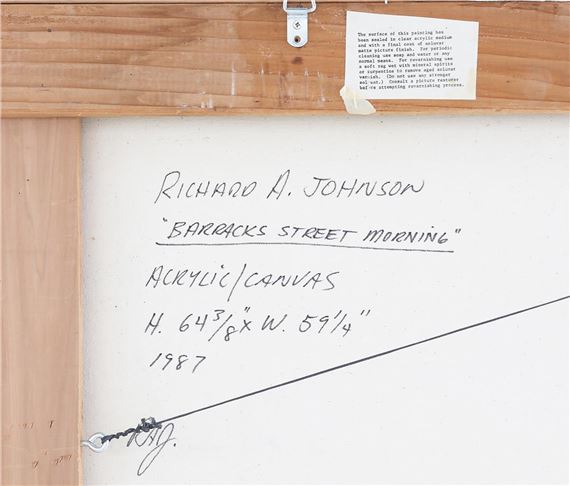 The surface of this painting has
been sealed in clear acrylic medium
and with a final coat of soluvar
matte picture finish. For periodic
cleaning use soap and water or any
normal means. For revarnishing use
a soft rag wet with mineral spirits
or turpentine to remove aged soluvar
varnish. (Do not use any stronger
solvent.) Consult a picture restorer
before attempting revarnishing process.
RICHARD A. JOHNSON
"BARRACKS STREET MORNING"
ACRYLIC/CANVAS
H. 64 3/8" x W. 59 1/4"
1987
RAJ.